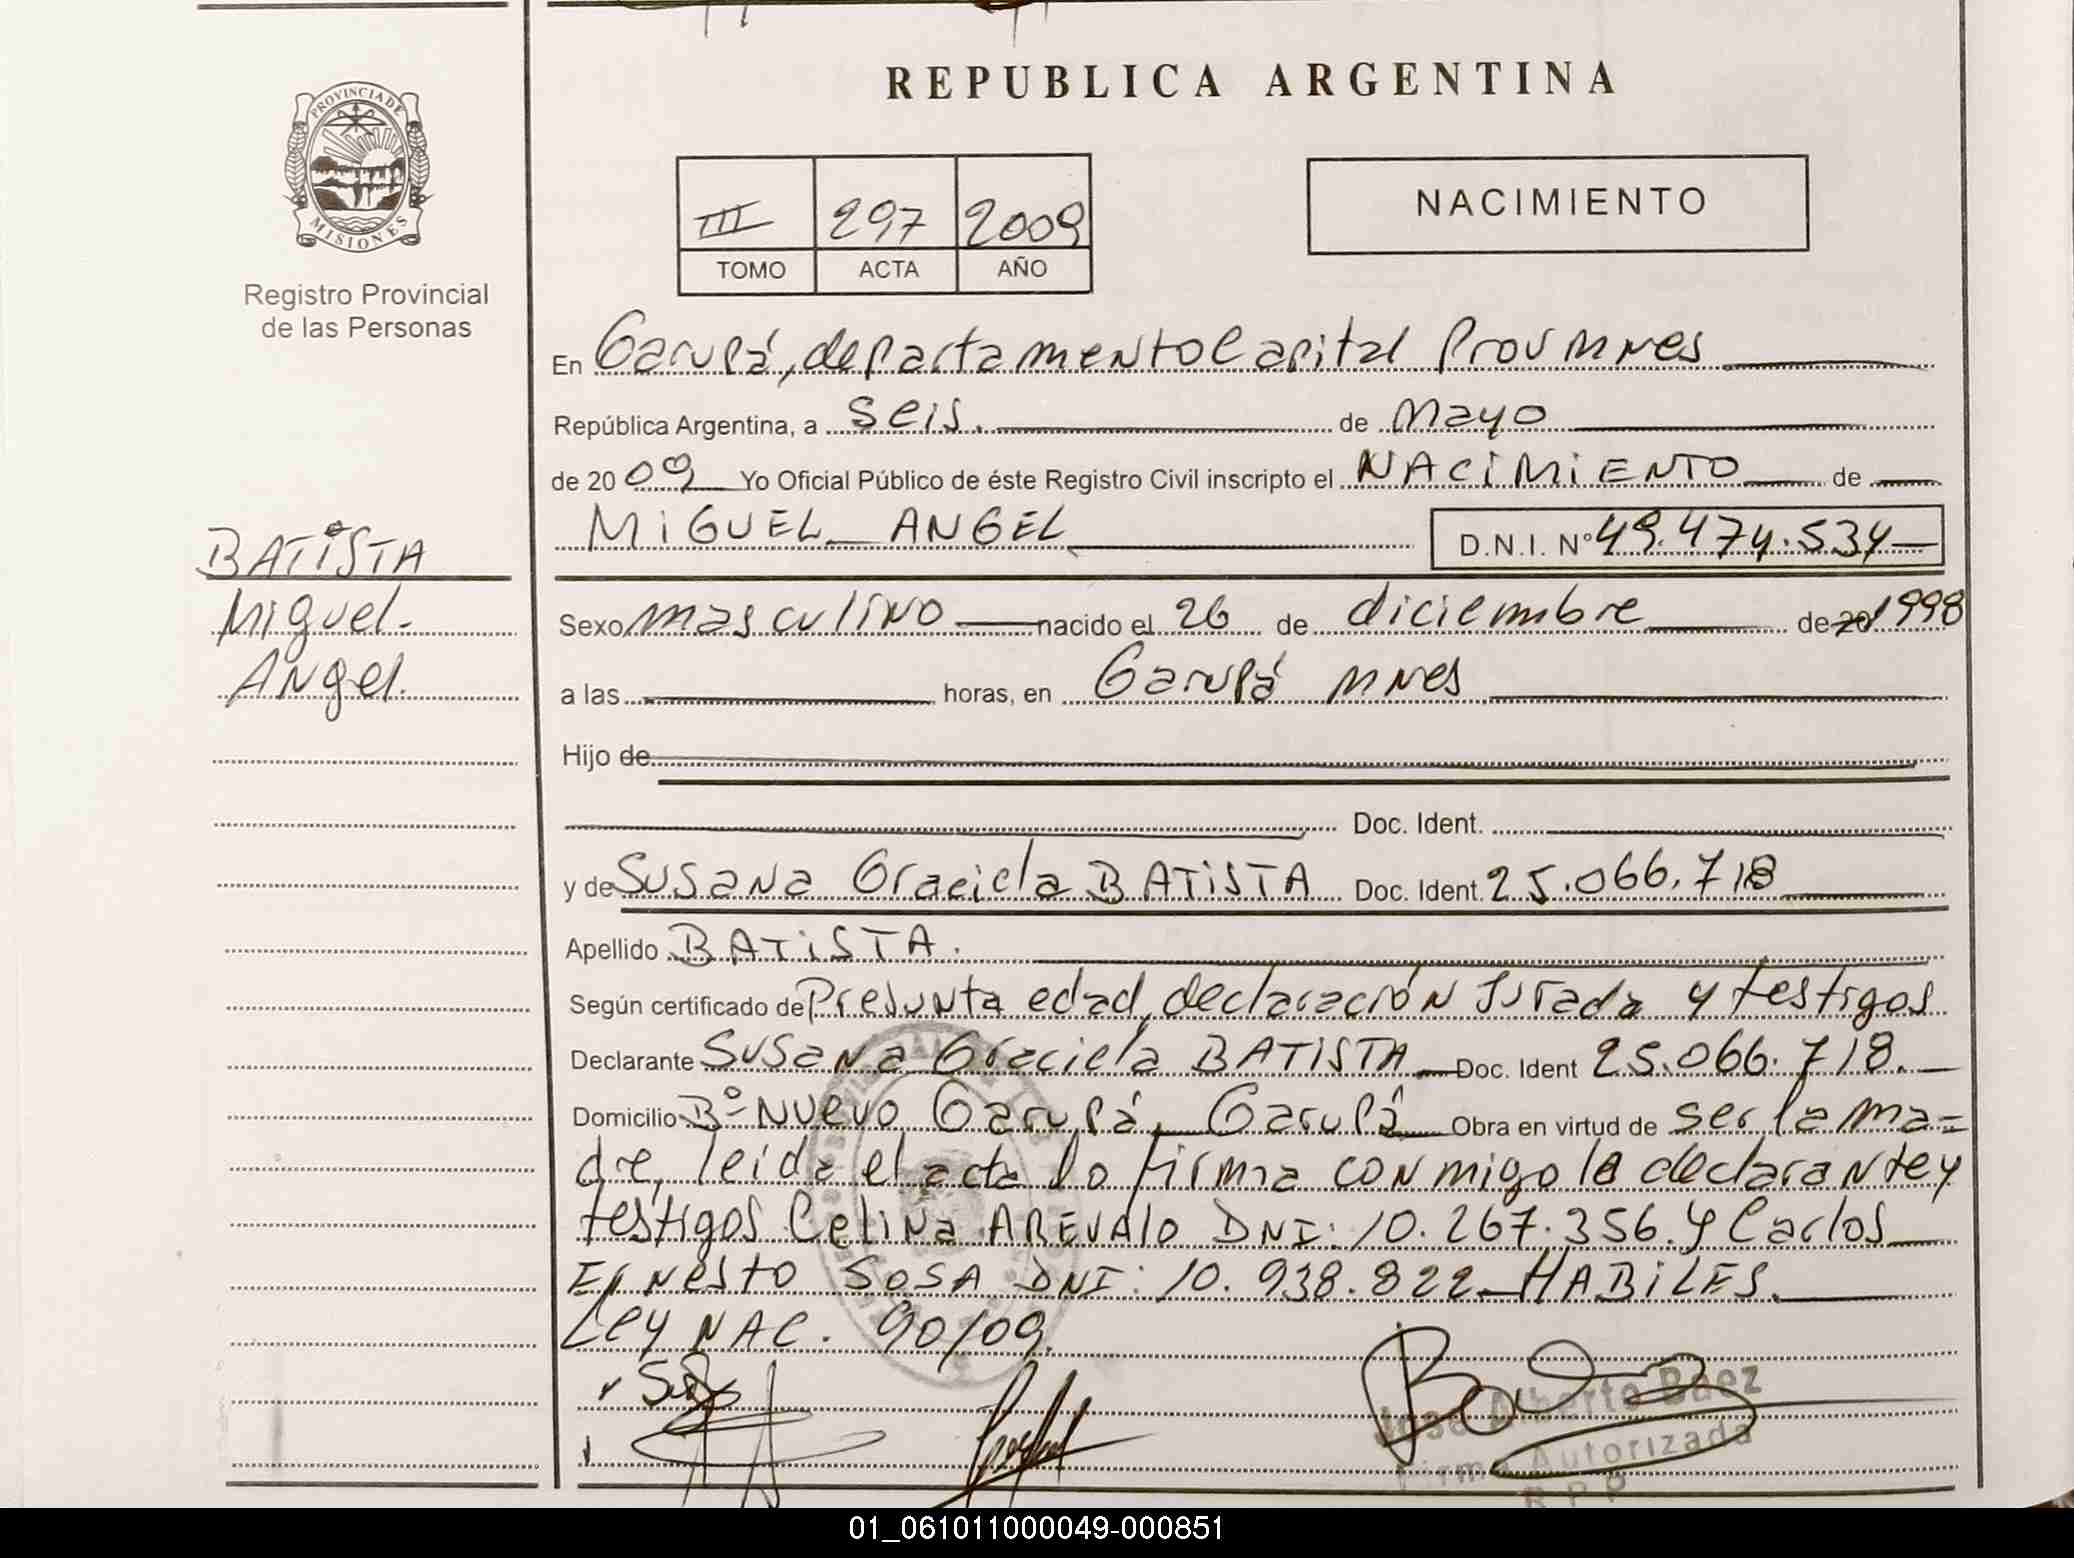 REPUBLICA ARGENTINA
PROVINCIA DE
MISIONES
Registro Provincial
de las Personas
III 297 2009
TOMO ACTA AÑO
NACIMIENTO
En Garupá, departamento Capital Prov Mnes
República Argentina, a seis. de Mayo
de 2009 Yo Oficial Público de éste Registro Civil inscripto el NACIMIENTO de
MIGUEL ANGEL D.N.I. Nº 49.474.534
BATISTA
Miguel.
Angel.
Sexo masculino nacido el 26 de diciembre de 20 1998
a las horas, en Garupá Mnes
Hijo de
Doc. Ident.
y de Susana Graciela BATISTA Doc. Ident. 25.066.718
Apellido BATISTA.
Según certificado de Presunta edad, declaración Jurada y testigos
Declarante Susana Graciela BATISTA Doc. Ident 25.066.718.
Domicilio Bº Nuevo Garupá, Garupá Obra en virtud de ser la ma=
dre, leida el acta lo firma conmigo la declarante y
testigos Celina AREVALO DNI: 10.267.356. y Carlos
Ernesto SOSA DNI: 10.938.822 HABILES.
Ley NAC. 90/09.
Jose Alberto Baez
Firma Autorizada
R P P
01_061011000049-000851